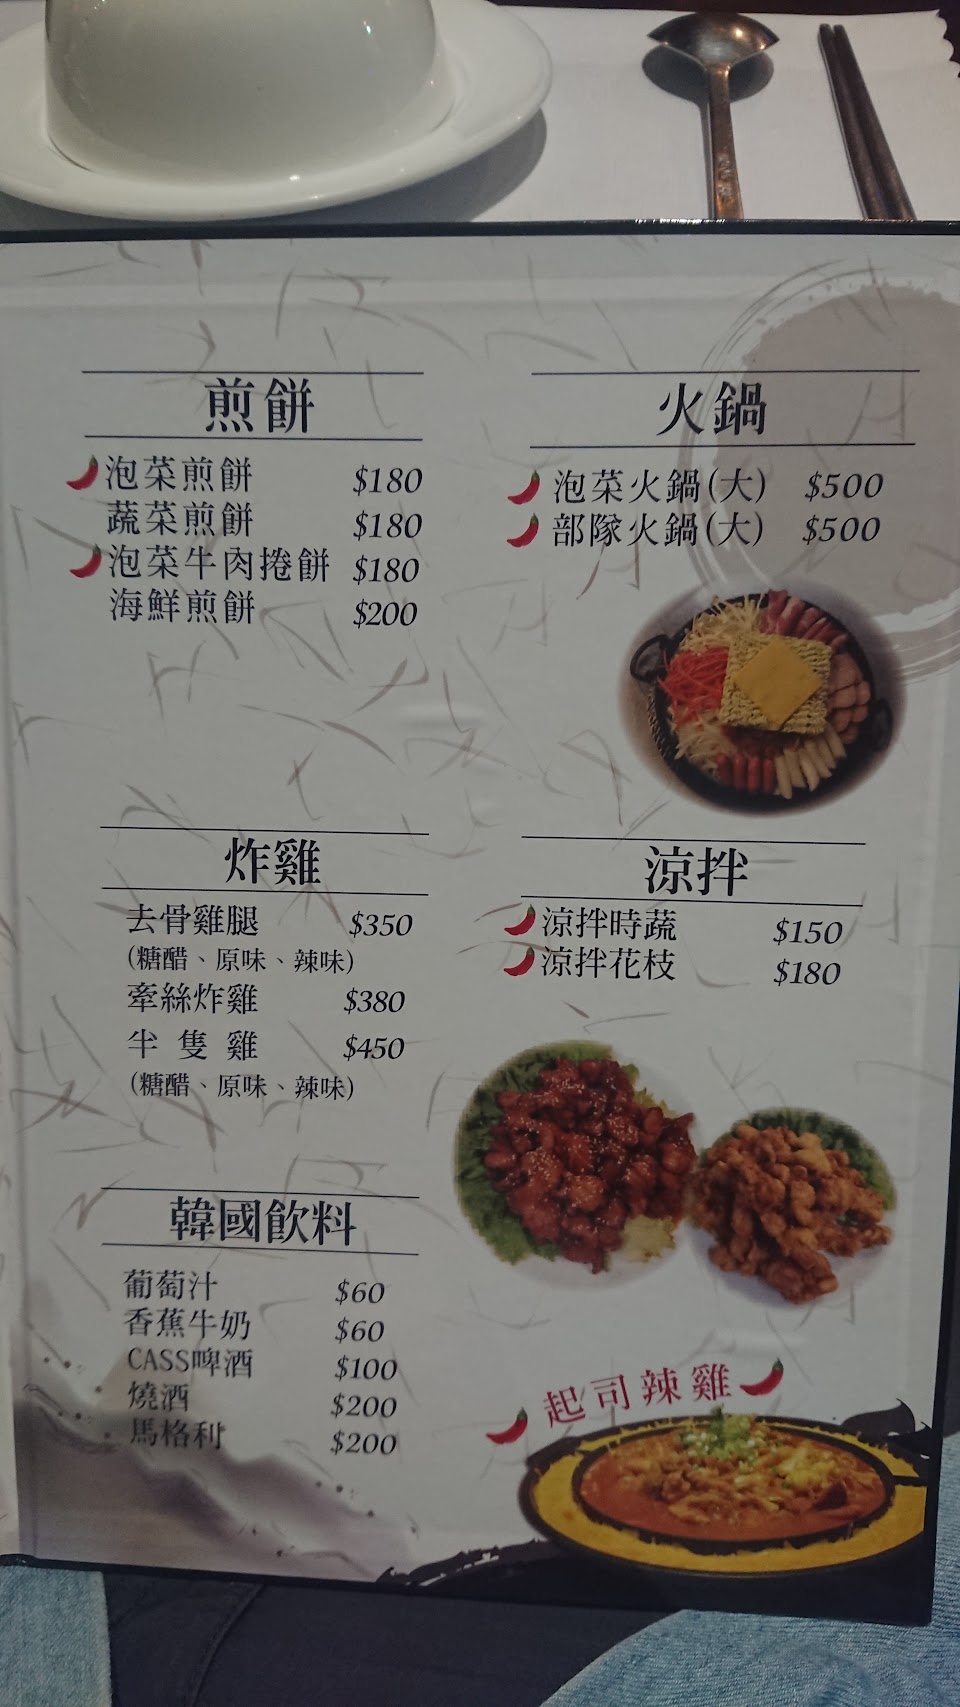 煎餅
泡菜煎餅 $180
蔬菜煎餅 $180
泡菜牛肉捲餅 $180
海鮮煎餅 $200
火鍋
泡菜火鍋(大) $500
部隊火鍋(大) $500
炸雞
去骨雞腿 $350
(糖醋、原味、辣味)
牽絲炸雞 $380
半隻雞 $450
(糖醋、原味、辣味)
涼拌
涼拌時蔬 $150
涼拌花枝 $180
韓國飲料
葡萄汁 $60
香蕉牛奶 $60
CASS啤酒 $100
燒酒 $200
馬格利 $200
起司辣雞